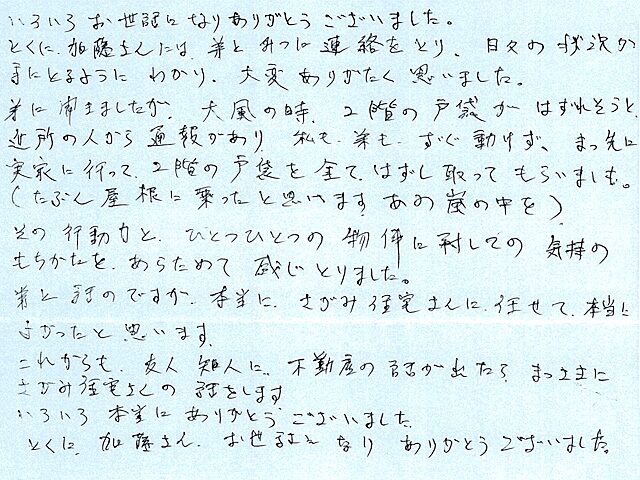 いろいろお世話になりありがとうございました。
とくに、加藤さんには、弟とみつに連絡をとり、日々の状況が
手にとるようにわかり、大変ありがたく思いました。
弟に聞きましたが、大風の時、2階の戸袋がはずれそうと、
近所の人から通報があり、私も、弟も、すぐ動けず、まっ先に
実家に行って、2階の戸袋を全て、はずし取ってもらいました。
(たぶん屋根に乗ったと思います。あの嵐の中を)
その行動力と、ひとつひとつの物件に対しての気持の
もちかたを、あらためて感じとりました。
弟と話のですが、本当に、さがみ住宅さんに、任せて、本当に
よかったと思います。
これからも、友人知人に、不動産の話が出たら、まっさきに
さがみ住宅さんの話をします
いろいろ本当にありがとうございました。
とくに、加藤さん、お世話になりありがとうございました。